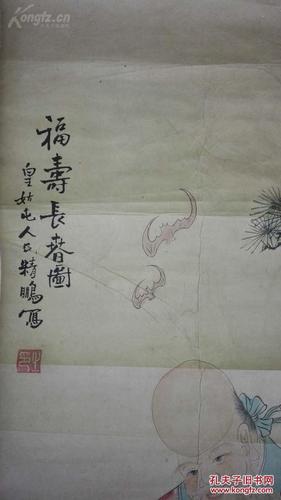 Kongfz.cn
福壽長春圖
皇姑屯人
精鵬寫
孔夫子旧书网